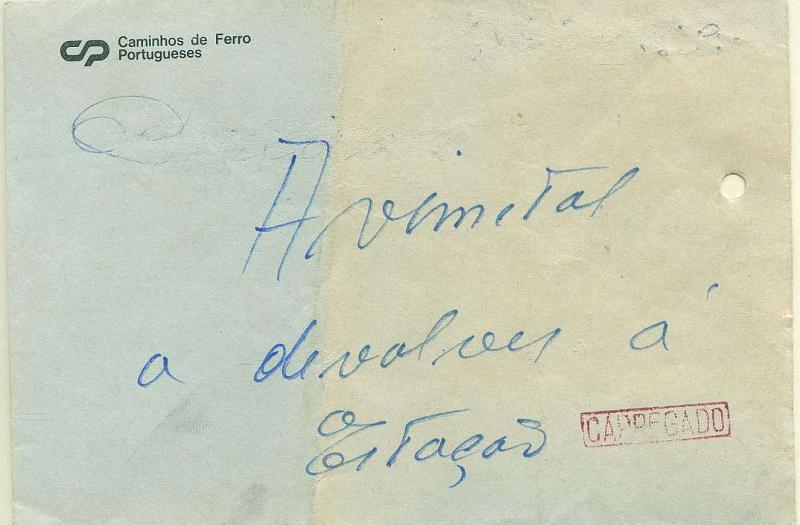 CP Caminhos de Ferro
Portugueses
Arvimetal
a devolver á
Estação
CARREGADO